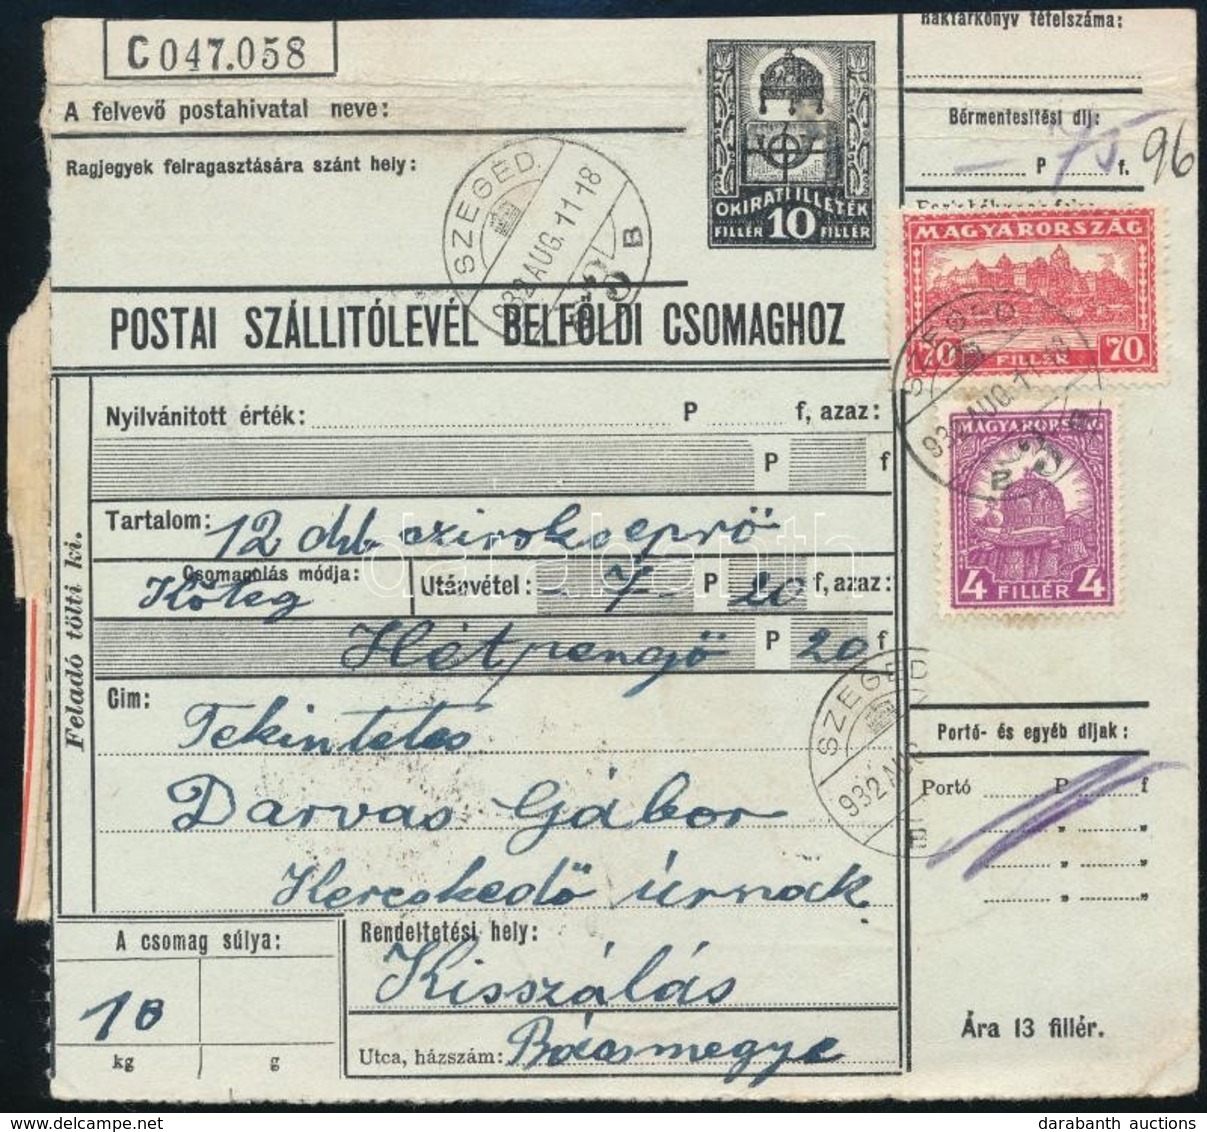 C 047.058
Raktárkönyv tételszáma:
A felvevő postahivatal neve:
Bérmentesítési díj:
75
P f.
96
Ragjegyek felragasztására szánt hely:
OKIRATI ILLETÉK
FILLÉR 10 FILLÉR
SZEGED.
932 AUG. 11-18
B
3
MAGYARORSZÁG
70 FILLÉR 70
POSTAI SZÁLLITÓLEVÉL BELFÖLDI CSOMAGHOZ
SZEGED
932 AUG. 11
MAGYARORSZÁG
4 FILLÉR 4
Nyilvánított érték: P f, azaz:
P f
Tartalom: 12 drb. szirokseprő
Csomagolás módja: Köteg
Utánvétel: - 7 - P 20 f, azaz:
Hétpengő P 20 f
Feladó tölti ki.
Cim: Tekintetes
Darvas Gábor
Kereskedő úrnak
SZEGED
932 AUG
B
Portó- és egyéb díjak:
Portó P f
" "
" "
" "
A csomag súlya:
10
kg g
Rendeltetési hely:
Kisszálás
Utca, házszám: Bácsmegye
Ára 13 fillér.
darabanth
darabanth auctions